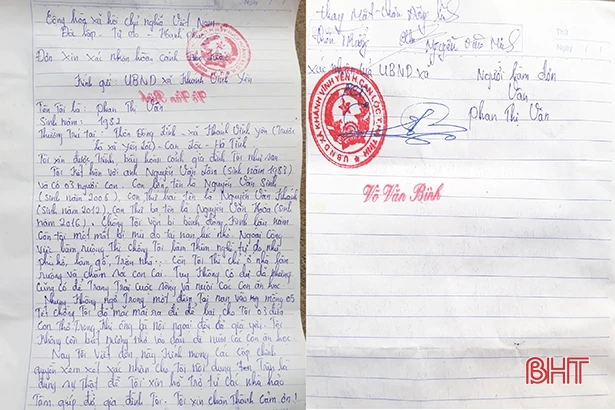 Cộng hòa xã hội chủ nghĩa Việt Nam
Độc lập - Tự do - Hạnh phúc
Đơn xin xác nhận hoàn cảnh
Kính gửi UBND xã Khánh Vĩnh Yên
Võ Văn Bình
Tên Tôi là: Phan Thị Vân
Sinh năm: 1982
Thường Trú tại: Thôn Đông Linh - xã Khánh Vĩnh Yên (Trước
là xã Yên Lộc) - Can Lộc - Hà Tĩnh
Tôi xin được Trình bày hoàn cảnh gia đình Tôi như sau
Tôi Kết hôn với anh Nguyễn Văn Lâm (sinh năm 1982)
và có 03 người con. Con lớn tên là Nguyễn Văn Sinh
(sinh năm 2006), Con Thứ hai tên là Nguyễn Văn Khánh
(sinh năm 2012), Con Thứ ba tên là Nguyễn Văn Khoa (sinh
năm 2016). Chồng Tôi vốn bị bệnh động Kinh lâu năm
Còn lại một mắt bị mù do Tai nạn lúc nhỏ. Ngoài Công
việc làm ruộng Thì chồng Tôi làm Thêm nghề tự do như
phụ hồ, làm gỗ, Trộn nhà... Còn Tôi Thì chỉ ở nhà làm
ruộng và chăm sóc con cái. Tuy Không có dư dả nhưng
cũng có để Trang Trải cuộc sống và nuôi các con ăn học
Nhưng Không ngờ Trong một đứng Tai nạn vào mồng 05
Tết chồng Tôi đã mãi mãi ra đi để lại cho Tôi 03 đứa
con Thơ. Trong Khi ông bà nội ngoại đều đã già yếu. Tôi
Không còn biết nương nhờ vào đâu để nuôi các con ăn học
Nay Tôi Viết đơn này Kính mong các cấp chính
quyền xem xét xác nhận cho Tôi nội dung đơn Trên là
đúng sự Thật để Tôi xin hỗ Trợ từ các nhà hảo
Tâm giúp đỡ gia đình Tôi. Tôi xin chân Thành cảm ơn!
Thay mặt Thôn Đông Linh
Thôn Trưởng
Nguyễn
xác nhận của UBND xã
Người làm đơn
Vân
Phan Thị Vân
U.B.N.D XÃ KHÁNH VĨNH YÊN H.CAN LỘC T.HÀ TĨNH
Võ Văn Bình
BHT